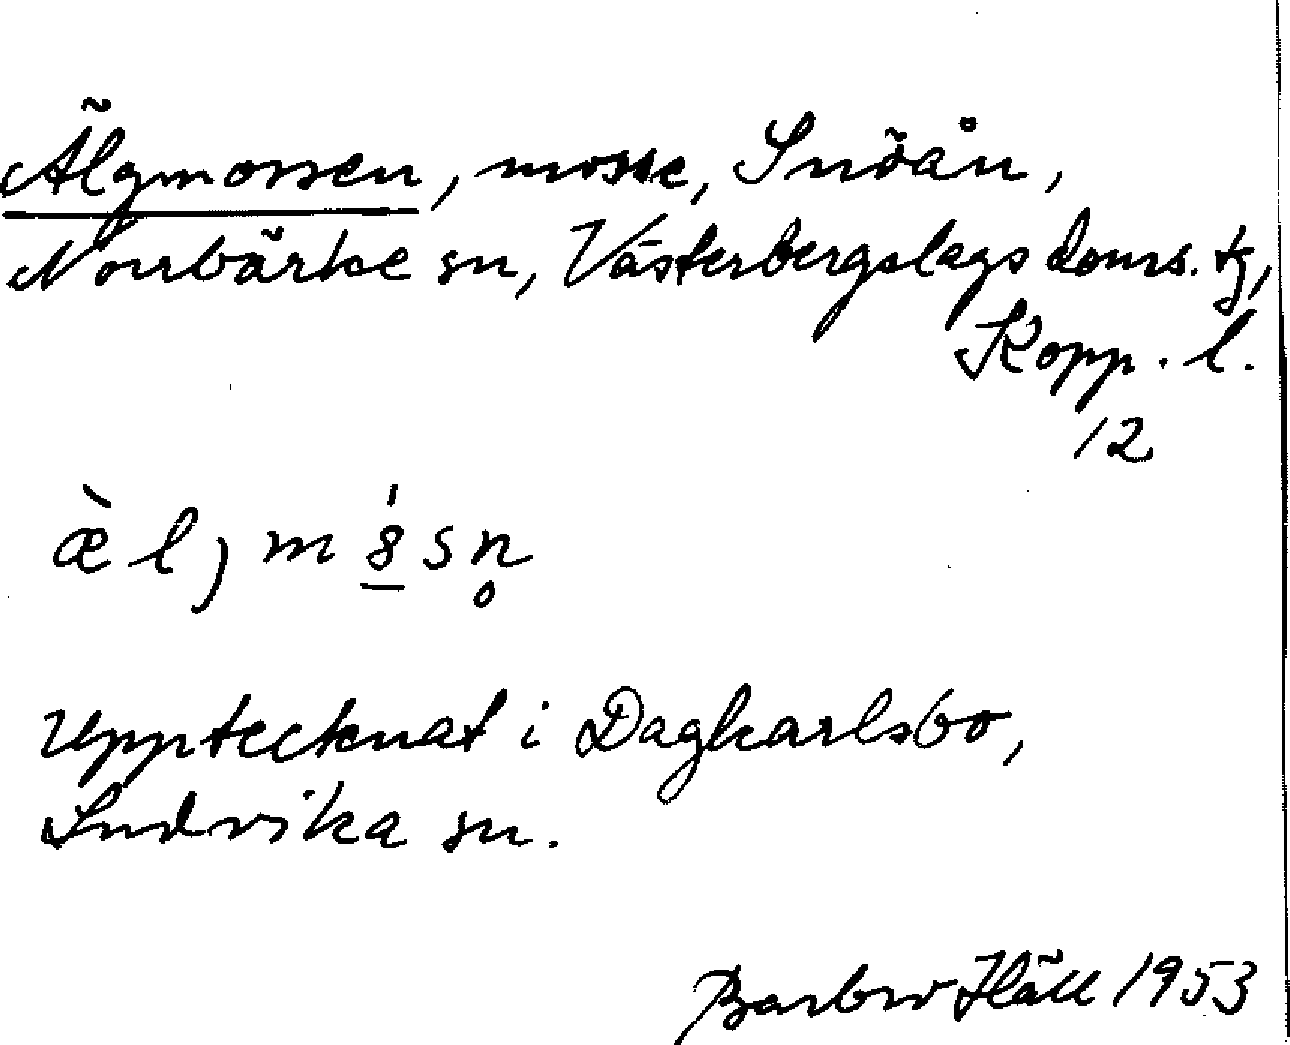 Älgmossen, mosse, Snöån,
Norrbärke sn, Västerbergslags doms. tg,
Kopp. l.
12
æ̀ l j m 8̲́ s n̥
Upptecknat i Dagkarlsbo,
Ludvika sn.
Barbro Häll 1953